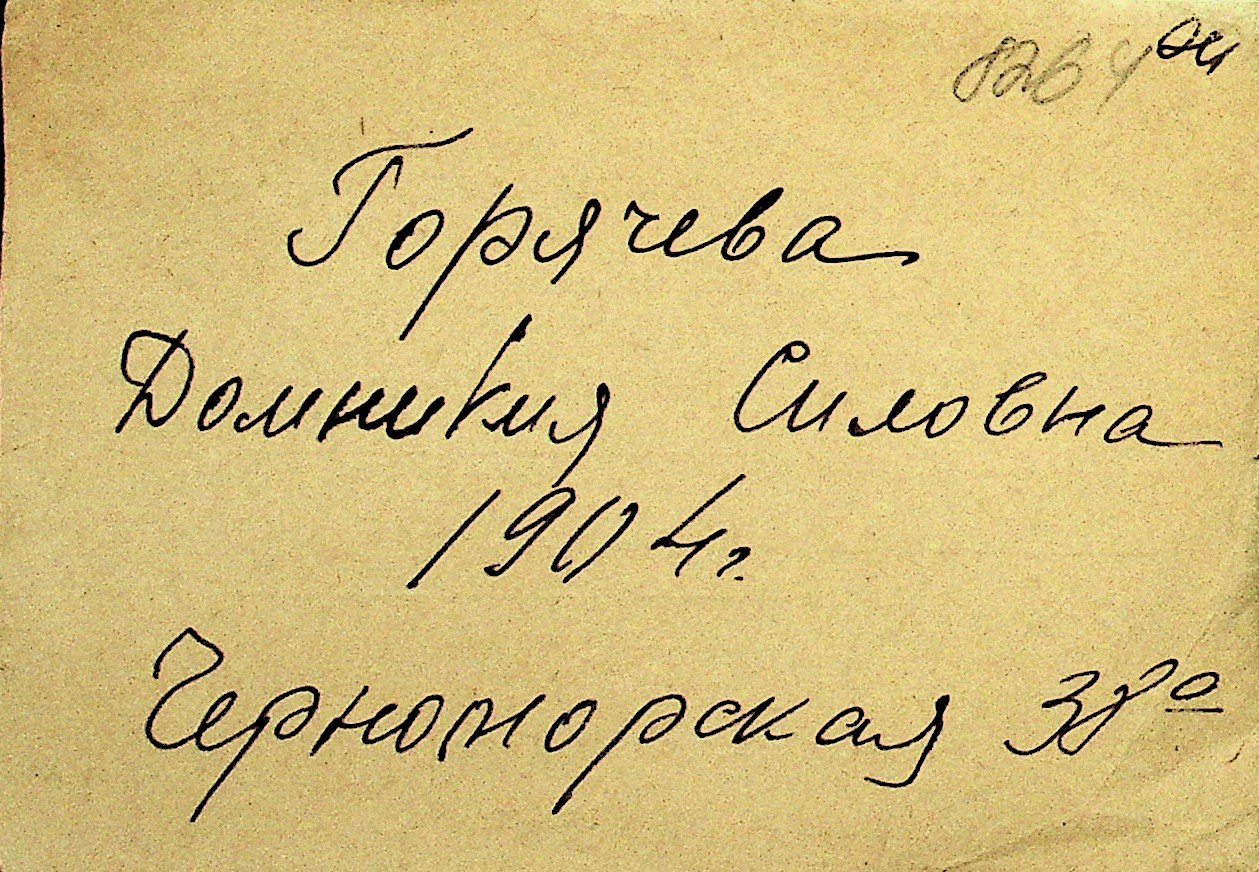 8264
Горячева
Домникия Силовна
1904 г.
Черноморская 38а